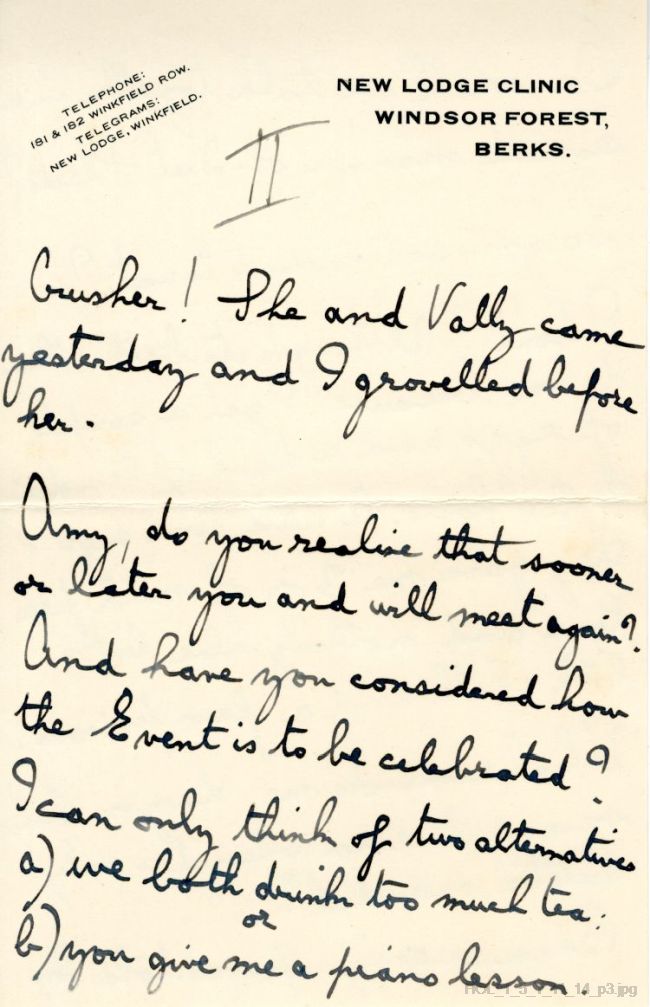 TELEPHONE:
181 & 182 WINKFIELD ROW.
TELEGRAMS:
NEW LODGE, WINKFIELD.
NEW LODGE CLINIC
WINDSOR FOREST,
BERKS.
II
Crusher! She and Vally came
yesterday and I grovelled before
her.
Amy, do you realise that sooner
or later you and will meet again?
And have you considered how
the Event is to be celebrated?
I can only think of two alternatives
a) we both drink too much tea:
or
b) you give me a piano lesson.
14_p3.jpg